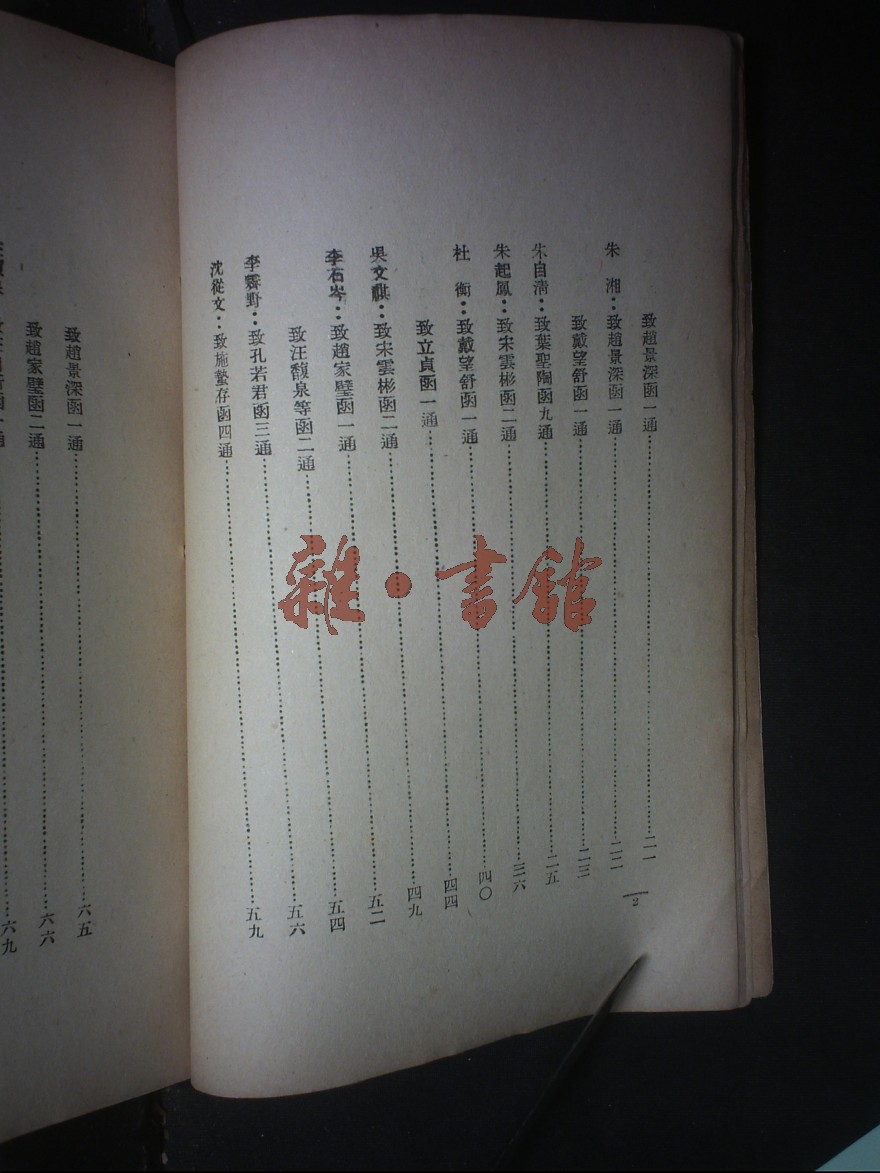 致趙景深函一通……二一
朱　湘：致趙景深函一通……二二
致戴望舒函一通……二三
朱自清：致葉聖陶函九通……二五
朱起鳳：致宋雲彬函二通……三六
杜　衡：致戴望舒函一通……四〇
致立貞函一通……四四
吳文祺：致宋雲彬函二通……四九
李石岑：致趙家璧函一通……五二
致汪馥泉等函二通……五四
李霽野：致孔若君函三通……五六
沈從文：致施蟄存函四通……五九
2
致趙景深函一通……六五
致趙家璧函二通……六六
函一通……六九
雜·書館